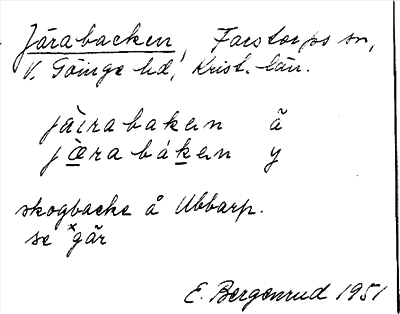 Järabacken, Farstorps sn,
V. Göinge hd, Krist. län.
jàirabakən ä
jæ̀rabákən y
skogbacke å Ubbarp.
se ˣgär
E. Bergenrud 1951